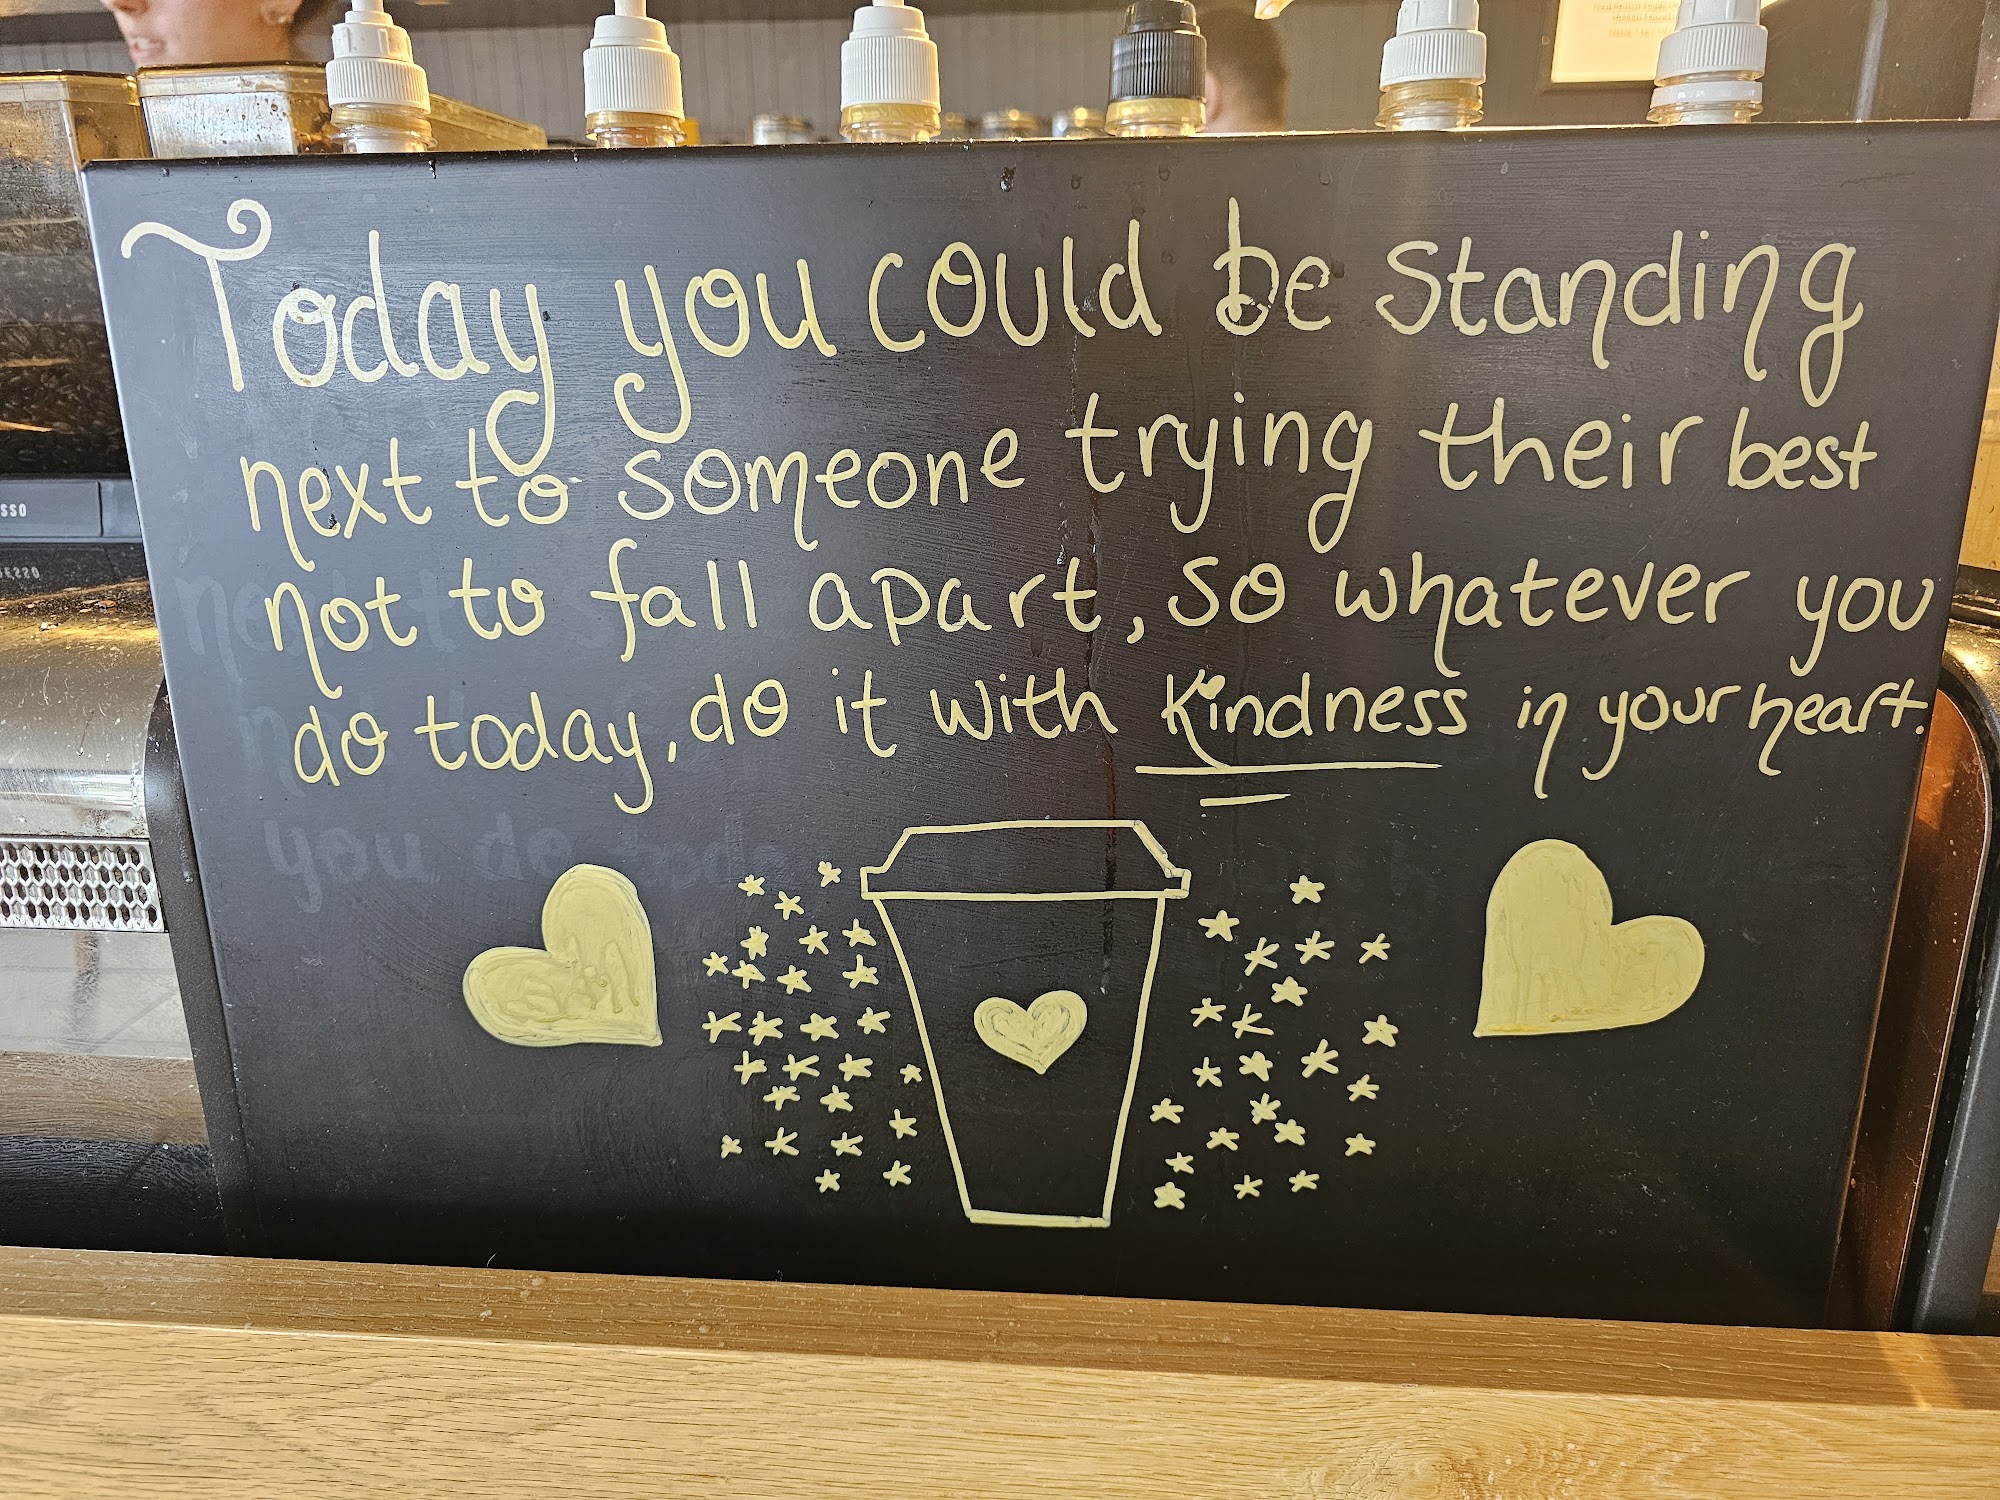 Today you could be standing
next to someone trying their best
not to fall apart, so whatever you
do today, do it with Kindness in your heart.
you do